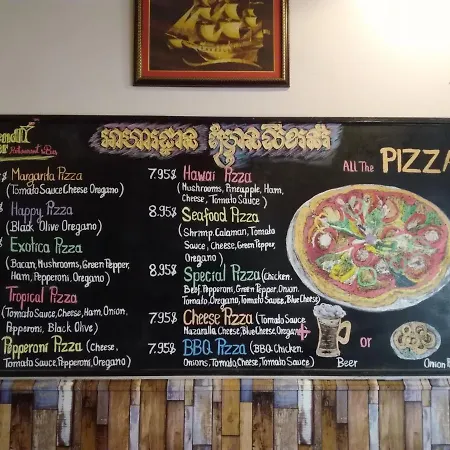 Restaurant & Bar
ALL The PIZZA
Margarita Pizza
(Tomato Sauce Cheese Oregano)
Happy Pizza
(Black Olive Oregano)
Exotica Pizza
(Bacan, Mushrooms, Green Pepper,
Ham, Pepperoni, Oregano)
Tropical Pizza
(Tomato Sauce, Cheese, Ham, Onion,
Pepperoni, Black Olive)
Pepperoni Pizza (Cheese,
Tomato Sauce, Pepperoni, Oregano)
7.95$ Hawai Pizza
(Mushrooms, Pineapple, Ham,
Cheese, Tomato Sauce)
8.95$ Seafood Pizza
(Shrimp, Calaman, Tomato
Sauce, Cheese, Green Pepper,
Oregano)
8.95$ Special Pizza (Chicken,
Beef, Pepperons, Green Pepper, Onion,
Tomato, Oregano, Tomato Sauce, Blue Cheese)
7.95$ Cheese Pizza (Tomato Sauce
Mazaralla Cheese, Blue Cheese, Oregano)
7.95$ BBQ Pizza (BBQ Chicken,
Onions, Tomato, Cheese, Tomato Sauce)
+ or
Beer Onion